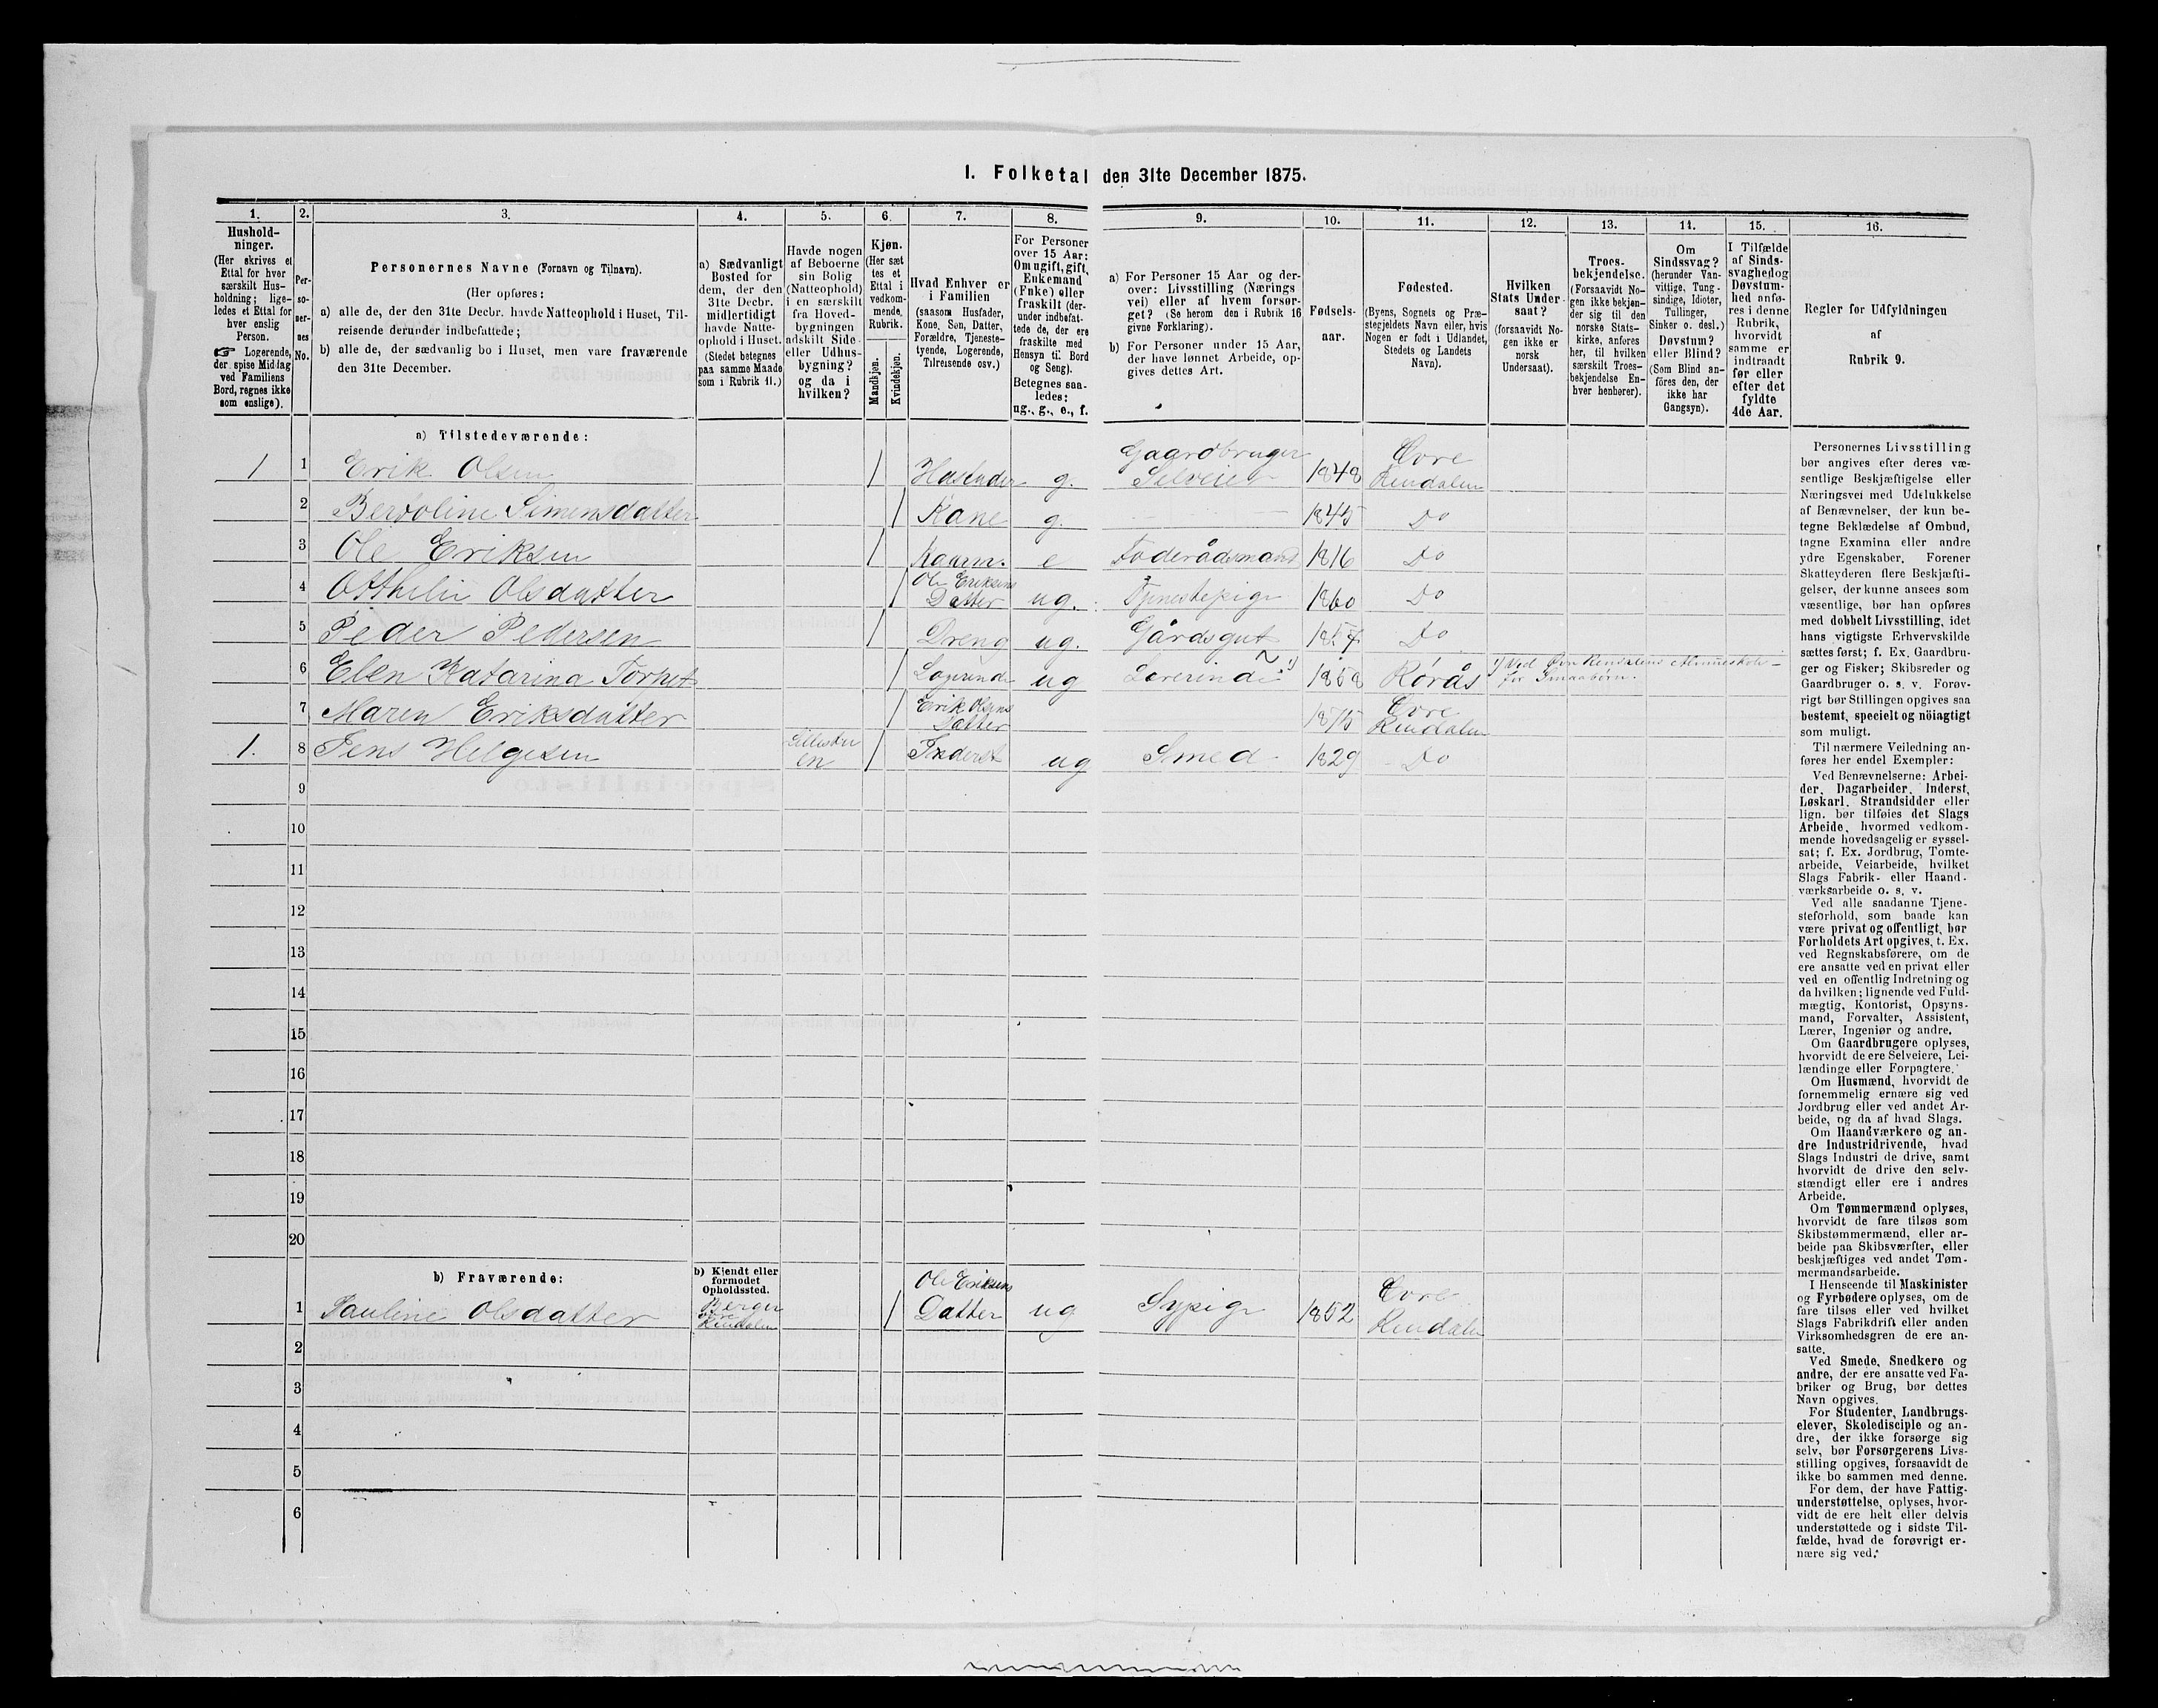 I. Folketal den 31te December 1875.
1. 2. 3. 4. 5. 6. 7. 8. 9. 10. 11. 12. 13. 14. 15. 16.
Hushold-
ninger.
(Her skrives et
Ettal for hver
særskilt Hus-
holdning; lige-
ledes et Ettal for
hver enslig
Person.
☞ Logerende,
der spise Middag
ved Familiens
Bord, regnes ikke
som enslige).
Per-
so-
ner-
nes
No.
Personernes Navne (Fornavn og Tilnavn).
(Her opføres:
a) alle de, der den 31te Decbr. havde Natteophold i Huset, Til-
reisende derunder indbefattede;
b) alle de, der sædvanlig bo i Huset, men vare fraværende
den 31te December.
a) Sædvanligt
Bosted for
dem, der den
31te Decbr.
midlertidigt
havde Natte-
ophold i Huset.
(Stedet betegnes
paa samme Maade
som i Rubrik 11.)
Havde nogen
af Beboerne
sin Bolig
(Natteophold)
i en særskilt
fra Hoved-
bygningen
adskilt Side-
eller Udhus-
bygning?
og da i
hvilken?
Kjøn.
(Her sæt
tes et
Ettal i
vedkom-
mende
Rubrik.
Mandkjøn.
Kvindekjøn.
Hvad Enhver er
i Familien
(saasom Husfader,
Kone, Søn, Datter,
Forældre, Tjeneste-
tyende, Logerende,
Tilreisende osv.)
For Personer
over 15 Aar:
Om ugift, gift,
Enkemand
(Enke) eller
fraskilt (der-
under indbefat-
tede de, der ere
fraskilte med
Hensyn til Bord
og Seng).
Betegnes saa-
ledes:
ug., g., e., f.
a) For Personer 15 Aar og der-
over: Livsstilling (Nærings
vei) eller af hvem forsør-
get? (Se herom den i Rubrik 16
givne Forklaring).
b) For Personer under 15 Aar,
der have lønnet Arbeide, op-
gives dettes Art.
Fødsels-
aar.
Fødested.
(Byens, Sognets og Præ-
stegjeldets Navn eller, hvis
Nogen er født i Udlandet,
Stedets og Landets
Navn).
Hvilken
Stats Under-
saat?
(forsaavidt No-
gen ikke er
norsk
Undersaat).
Troes-
bekjendelse.
(Forsaavidt No-
gen ikke bekjen-
der sig til den
norske Stats-
kirke, anføres
her, til hvilken
særskilt Troes-
bekjendelse En-
hver henhører).
Om
Sindssvag?
(herunder Van-
vittige, Tung-
sindige, Idioter,
Tullinger,
Sinker o. desl.)
Døvstum?
eller Blind?
(Som Blind an-
føres den, der
ikke har
Gangsyn).
I Tilfælde
af Sinds-
svaghed og
Døvstum-
hed anfø-
res i denne
Rubrik,
hvorvidt
samme er
indtraadt
før eller
efter det
fyldte
4de Aar.
Regler for Udfyldningen
af
Rubrik 9.
a) Tilstedeværende:
1 1 Erik Olsen 1 g. Gaardbruger Selveier 1848 Øvre Rendalen
2 Bertoline Simensdatter 1 Kone g. 1845 Do
3 Ole Eriksen 1 e Foderådsmand 1816 Do
4 Olsdatter 1 Ole Eriksens Datter ug. Tjenestepige 1860 Do
5 Peder Pedersen 1 Dreng ug. Gårdsgut Do
6 Elen Katarina 1 ug Lærerinde 1) 1858 Rörås 1) Ved Øvre Rendalens Almueskole for Smaabörn.
7 Maren Eriksdatter 1 Erik Olsens Datter 1875 Øvre Rendalen
1. 8 Jens Helgesen 1 Inderst ug Smed 1829 Do
9
10
11
12
13
14
15
16
17
18
19
20
b) Fraværende:
b) Kjendt eller
formodet
Opholdssted.
1 Pauline Olsdatter Berger Øvre Rendalen 1 Ole Eriksens Datter ug Sypige 1852 Øvre Rendalen
2
3
4
5
6
Personernes Livsstilling
bør angives efter deres væ-
sentlige Beskjæftigelse eller
Næringsvei med Udelukkelse
af Benævnelser, der kun be-
tegne Beklædelse af Ombud,
tagne Examina eller andre
ydre Egenskaber. Forener
Skatteyderen flere Beskjæfti-
gelser, der kunne ansees som
væsentlige, bør han opføres
med dobbelt Livsstilling, idet
hans vigtigste Erhvervskilde
sættes først; f. Ex. Gaardbru-
ger og Fisker; Skibsreder og
Gaardbruger o. s. v. Forøv-
rigt bør Stillingen opgives saa
bestemt, specielt og nöiagtigt
som muligt.
Til nærmere Veiledning an-
føres her endel Exempler:
Ved Benævnelserne: Arbei-
der, Dagarbeider, Inderst,
Løskarl, Strandsidder eller
lign. bør tilføies det Slags
Arbeide, hvormed vedkom-
mende hovedsagelig er syssel-
sat; f. Ex. Jordbrug, Tomte-
arbeide, Veiarbeide, hvilket
Slags Fabrik- eller Haand-
værksarbeide o. s. v.
Ved alle saadanne Tjene-
steforhold, som baade kan
være privat og offentligt, bør
Forholdets Art opgives, t. Ex.
ved Regnskabsførere, om de
ere ansatte ved en privat eller
ved en offentlig Indretning og
da hvilken; lignende ved Fuld-
mægtig, Kontorist, Opsyns-
mand, Forvalter, Assistent,
Lærer, Ingeniør og andre.
Om Gaardbrugere oplyses,
hvorvidt de ere Selveiere, Lei-
lændinge eller Forpagtere.
Om Husmænd, hvorvidt de
fornemmelig ernære sig ved
Jordbrug eller ved andet Ar-
beide, og da af hvad Slags.
Om Haandværkere og an-
dre Industridrivende, hvad
Slags Industri de drive, samt
hvorvidt de drive den selv-
stændigt eller ere i andres
Arbeide.
Om Tømmermænd oplyses,
hvorvidt de fare tilsøs som
Skibstømmermænd, eller ar-
beide paa Skibsværfter, eller
beskjæftiges ved andet Tøm-
mermandsarbeide.
I Henseende til Maskinister
og Fyrbødere oplyses, om de
fare tilsøs eller ved hvilket
Slags Fabrikdrift eller anden
Virksomhedsgren de ere an-
satte.
Ved Smede, Snedkere og
andre, der ere ansatte ved Fa-
briker og Brug, bør dettes
Navn opgives.
For Studenter, Landbrugs-
elever, Skoledisciple og an-
dre, der ikke forsørge sig
selv, bør Forsørgerens Livs-
stilling opgives, forsaavidt de
ikke bo sammen med denne.
For dem, der have Fattig-
understøttelse, oplyses, hvor-
vidt de ere helt eller delvis
understøttede og i sidste Til-
fælde, hvad de forøvrigt er-
nære sig ved.